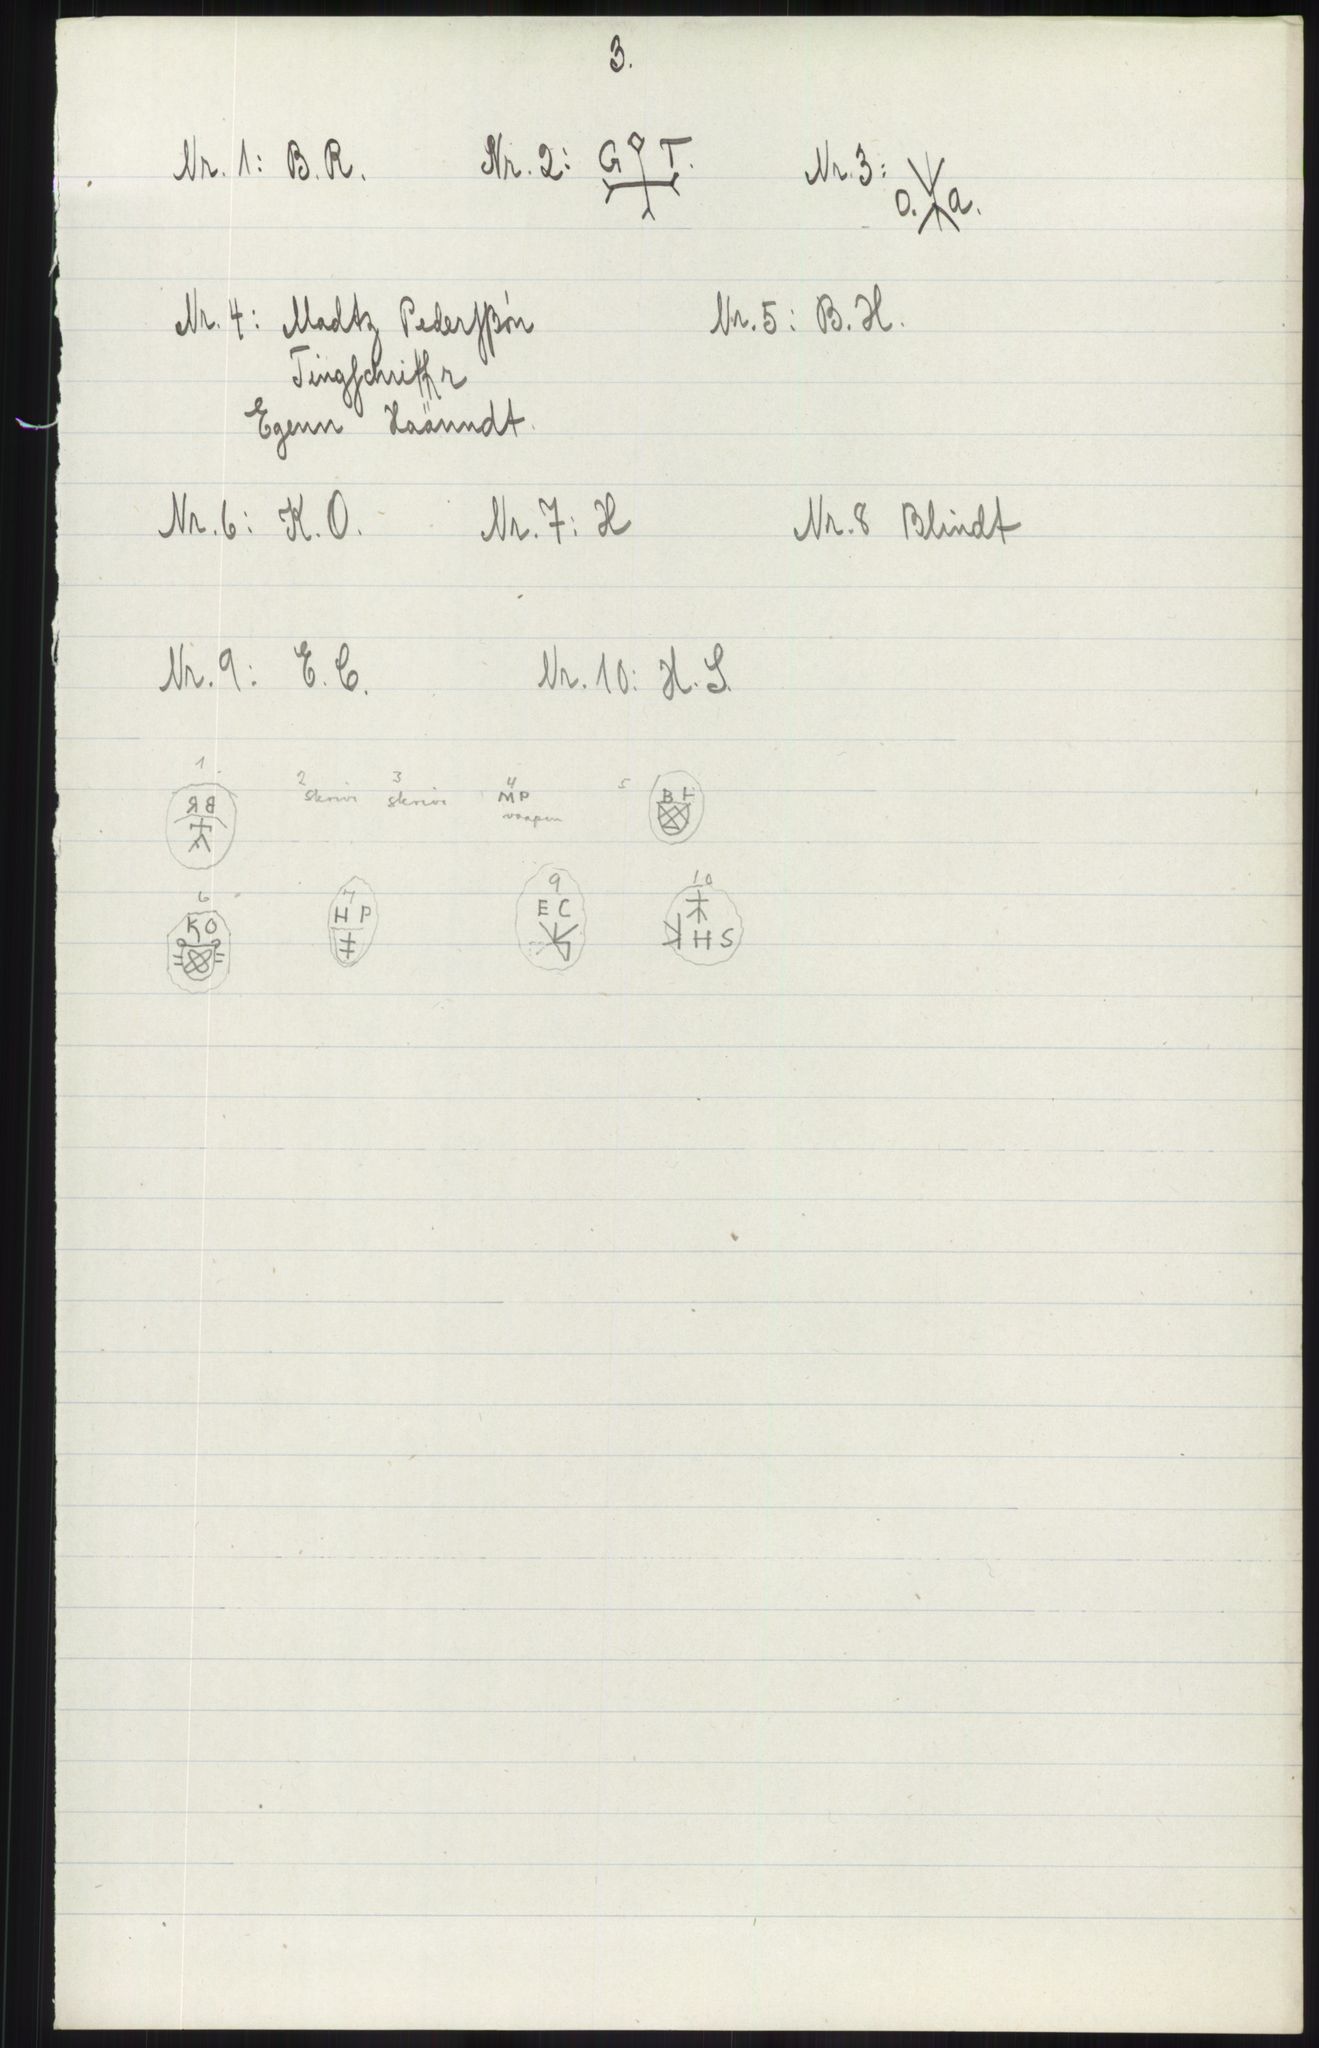 3.
Nr. 1: B. R. Nr. 2: G T. Nr. 3: O. A.
Nr. 4: Madtz Pederssøn Nr. 5: B. H.
Tingschriffr
Egenn Haånndt.
Nr. 6: K. O. Nr. 7: H Nr. 8 Blindt
Nr. 9: E. C. Nr. 10: H. S.
1. 2 3 4 5
skrivi skrivi MP
vaapen
BR BH
6 7 9 10
KO HP EC HS